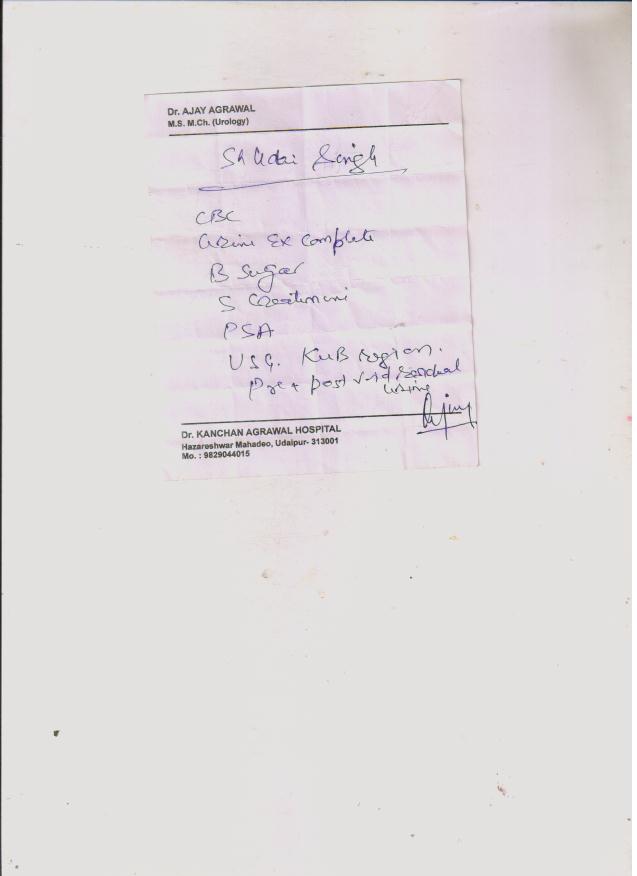 Dr. AJAY AGRAWAL
M.S. M.Ch. (Urology)
Sh Udai Singh
CBC
Urine Ex Complete
B Sugar
S Creatinini
PSA
USG. KUB region.
Pre + post void residual
urine
Dr. KANCHAN AGRAWAL HOSPITAL
Hazareshwar Mahadeo, Udaipur- 313001
Mo. : 9829044015